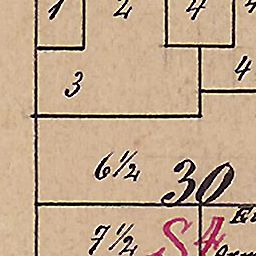 1 2 4
3 4
6½
30
7½ St